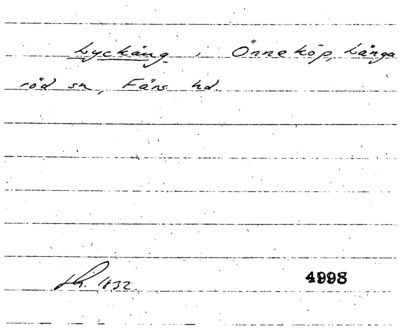 Lyckäng i Önneköp, Långa
röd sn, Färs hd.
Sk. 1832. 4998